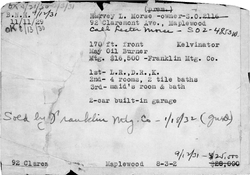 (prom.)
Harvey L. Morse -owner-S.O.2114
92 Claremont Ave., Maplewood
Call Lester Morse - SO2-
170 ft. front Kelvinator
May Oil Burner
Mtg. $16,500 -Franklin Mtg. Co.
1st- L.R.,D.R.,K.
2nd- 4 rooms, 2 tile baths
3rd- maid's room & bath
2-car built-in garage
Sold by Franklin Mtg. Co - 1/18/32
9/17/31 - $25,000
92 Clarem Maplewood 8-3-2